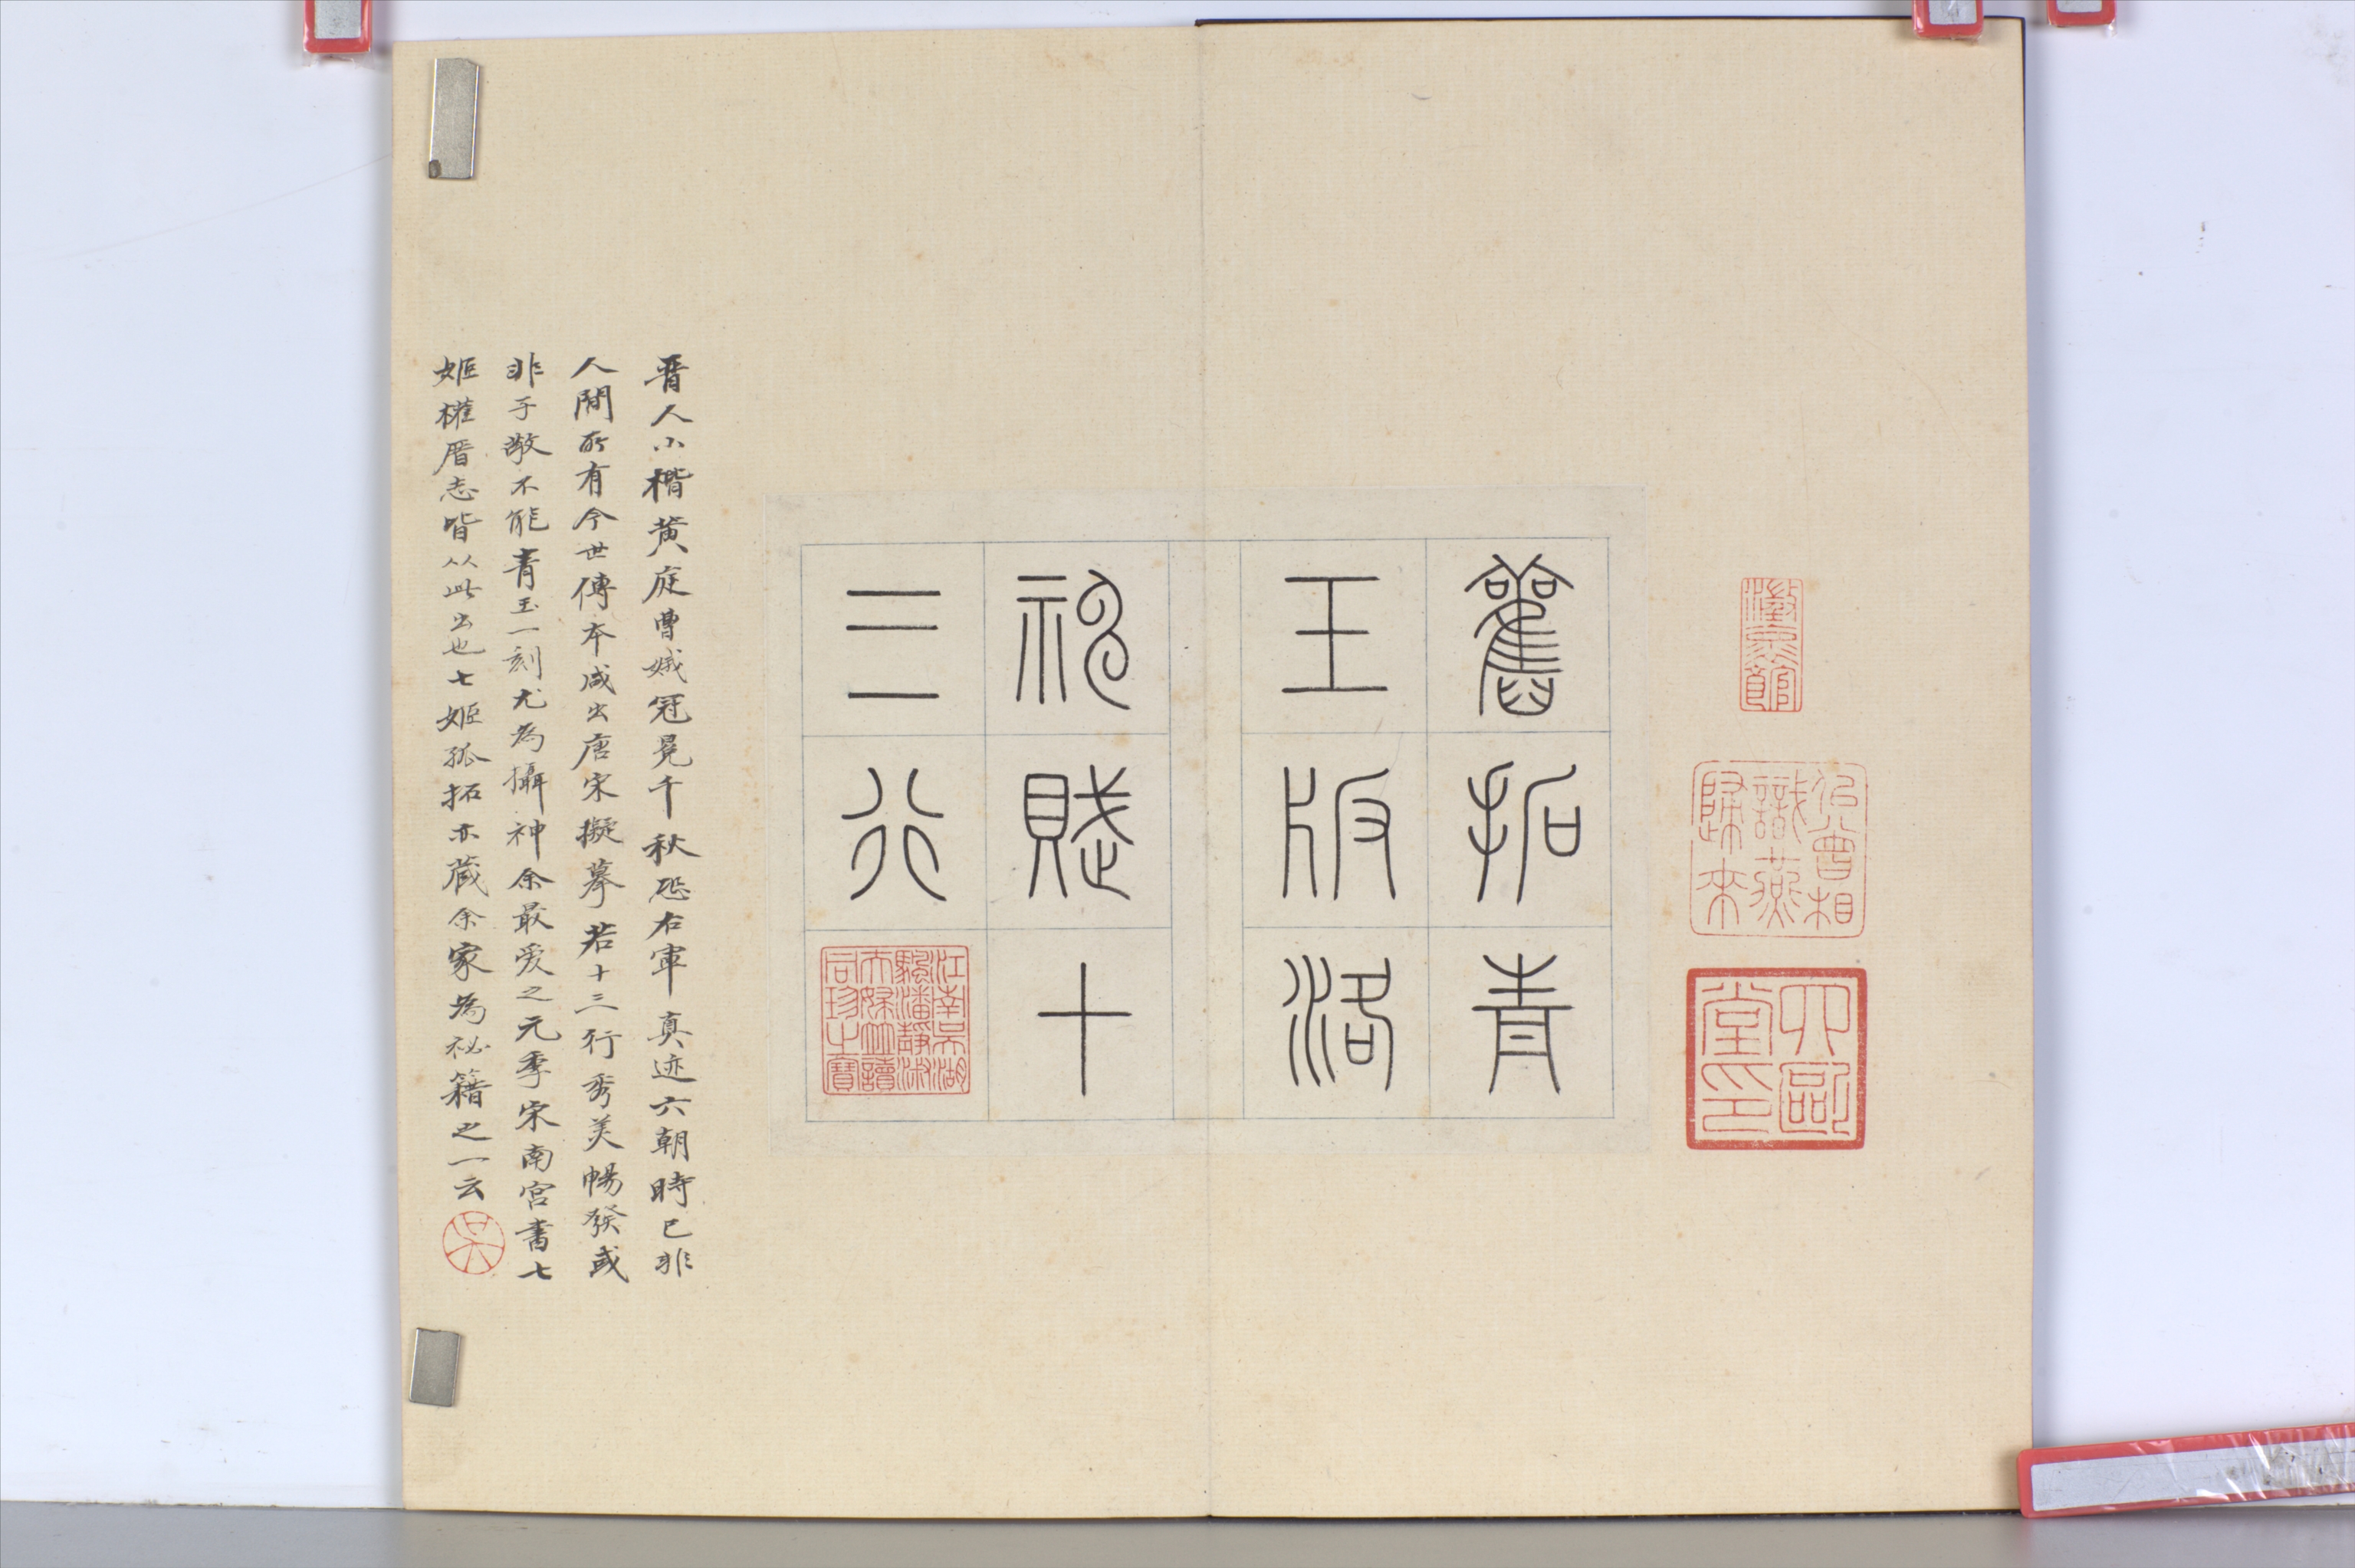 似曾相識燕歸來
四歐堂印
舊拓青
玉版洛
神賦十
三行
江南吳湖
颿潘靜淑
夫婦並讀
同珍之寶
晉人小楷黃庭曹娥冠冕千秋恐右軍真迹六朝時已非
人間所有今世傳本咸出唐宋擬摹若十三行秀美暢發或
非子敬不能青玉一刻尤為攝神余最愛之元季宋南宮書七
姬權厝志皆从此出也七姬孤拓亦藏余家為祕籍之一云
吳